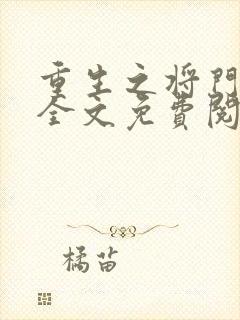 重生之将门
全文免费阅
橘苗